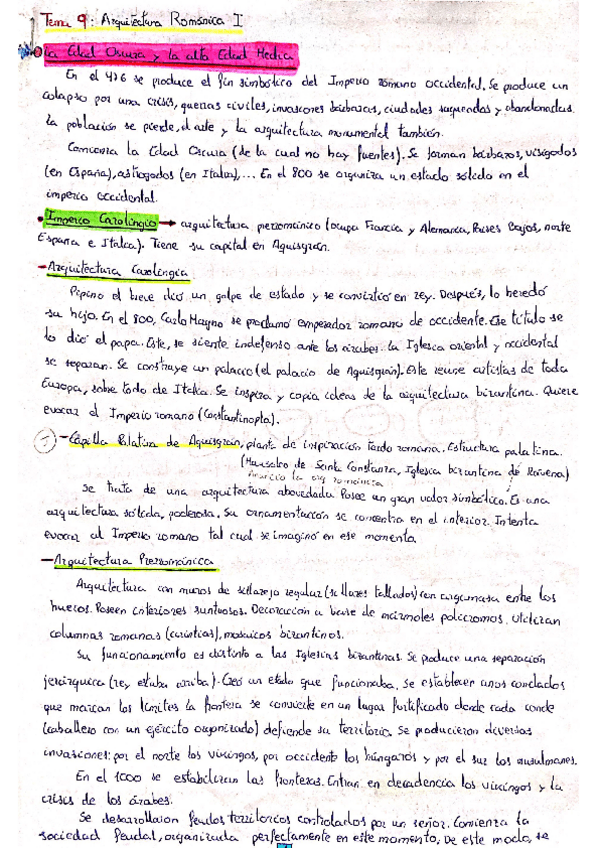 Tema 9: Arquitectura Románica I
La Edad Oscura y la alta Edad Media
En el 476 se produce el fin simbólico del Imperio romano occidental. Se produce un
colapso por una crisis, guerras civiles, invasiones bárbaras, ciudades saqueadas y abandonadas.
La población se pierde, el arte y la arquitectura monumental también.
Comienza la Edad Oscura (de la cual no hay fuentes). Se forman bárbaros, visigodos
(en España), ostrogodos (en Italia),... En el 800 se organiza un estado sólido en el
imperio occidental.
• Imperio Carolingio → arquitectura prerrománico (ocupa Francia y Alemania, Países Bajos, norte
España e Italia). Tiene su capital en Aquisgrán.
- Arquitectura carolingia
Pipino el breve dió un golpe de estado y se convirtió en rey. Después, lo heredó
su hijo. En el 800, Carlo Magno se proclamó emperador romano de occidente. Ese título se
lo dió el papa. Este, se siente indefenso ante los árabes. La Iglesia oriental y occidental
se separan. Se construye un palacio (el palacio de Aquisgrán). Este reune artistas de toda
Europa, sobre todo de Italia. Se inspira y copia ideas de la arquitectura bizantina. Quiere
evocar al Imperio romano (Constantinopla).
- Capilla Palatina de Aquisgrán, planta de inspiración tardo romana. Estructura palatina.
(Mausoleo de Santa Constanza, Iglesia bizantina de Rávena)
Se trata de una arquitectura abovedada. Posee un gran valor simbólico. Es una
arquitectura sólida, poderosa. Su ornamentación se concentra en el interior. Intenta
evocar al Imperio romano tal cual se imaginó en ese momento.
- Arquitectura Prerrománica
Arquitectura con muros de sillarejo regular (sillares tallados) con argamasa entre los
huecos. Poseen interiores suntuosos. Decoración a base de mármoles policromos. Utilizan
columnas romanas (corintias), mosaicos bizantinos.
Su funcionamiento es distinto a las Iglesias bizantinas. Se produce una separación
jerárquica (rey estaba arriba). Creó un estado que funcionaba, se establecen unos condados
que marcan los límites la frontera se convierte en un lugar fortificado donde cada conde
(caballero con un ejército organizado) defiende su territorio. Se produjeron diversas
invasiones: por el norte los vikingos, por occidente los húngaros y por el sur los musulmanes.
En el 1000 se estabilizan las fronteras. Entran en decadencia los vikingos y la
crisis de los árabes.
Se desarrollaron feudos, territorios controlados por un señor. Comienza la
sociedad feudal, organizada perfectamente en este momento. De este modo, se